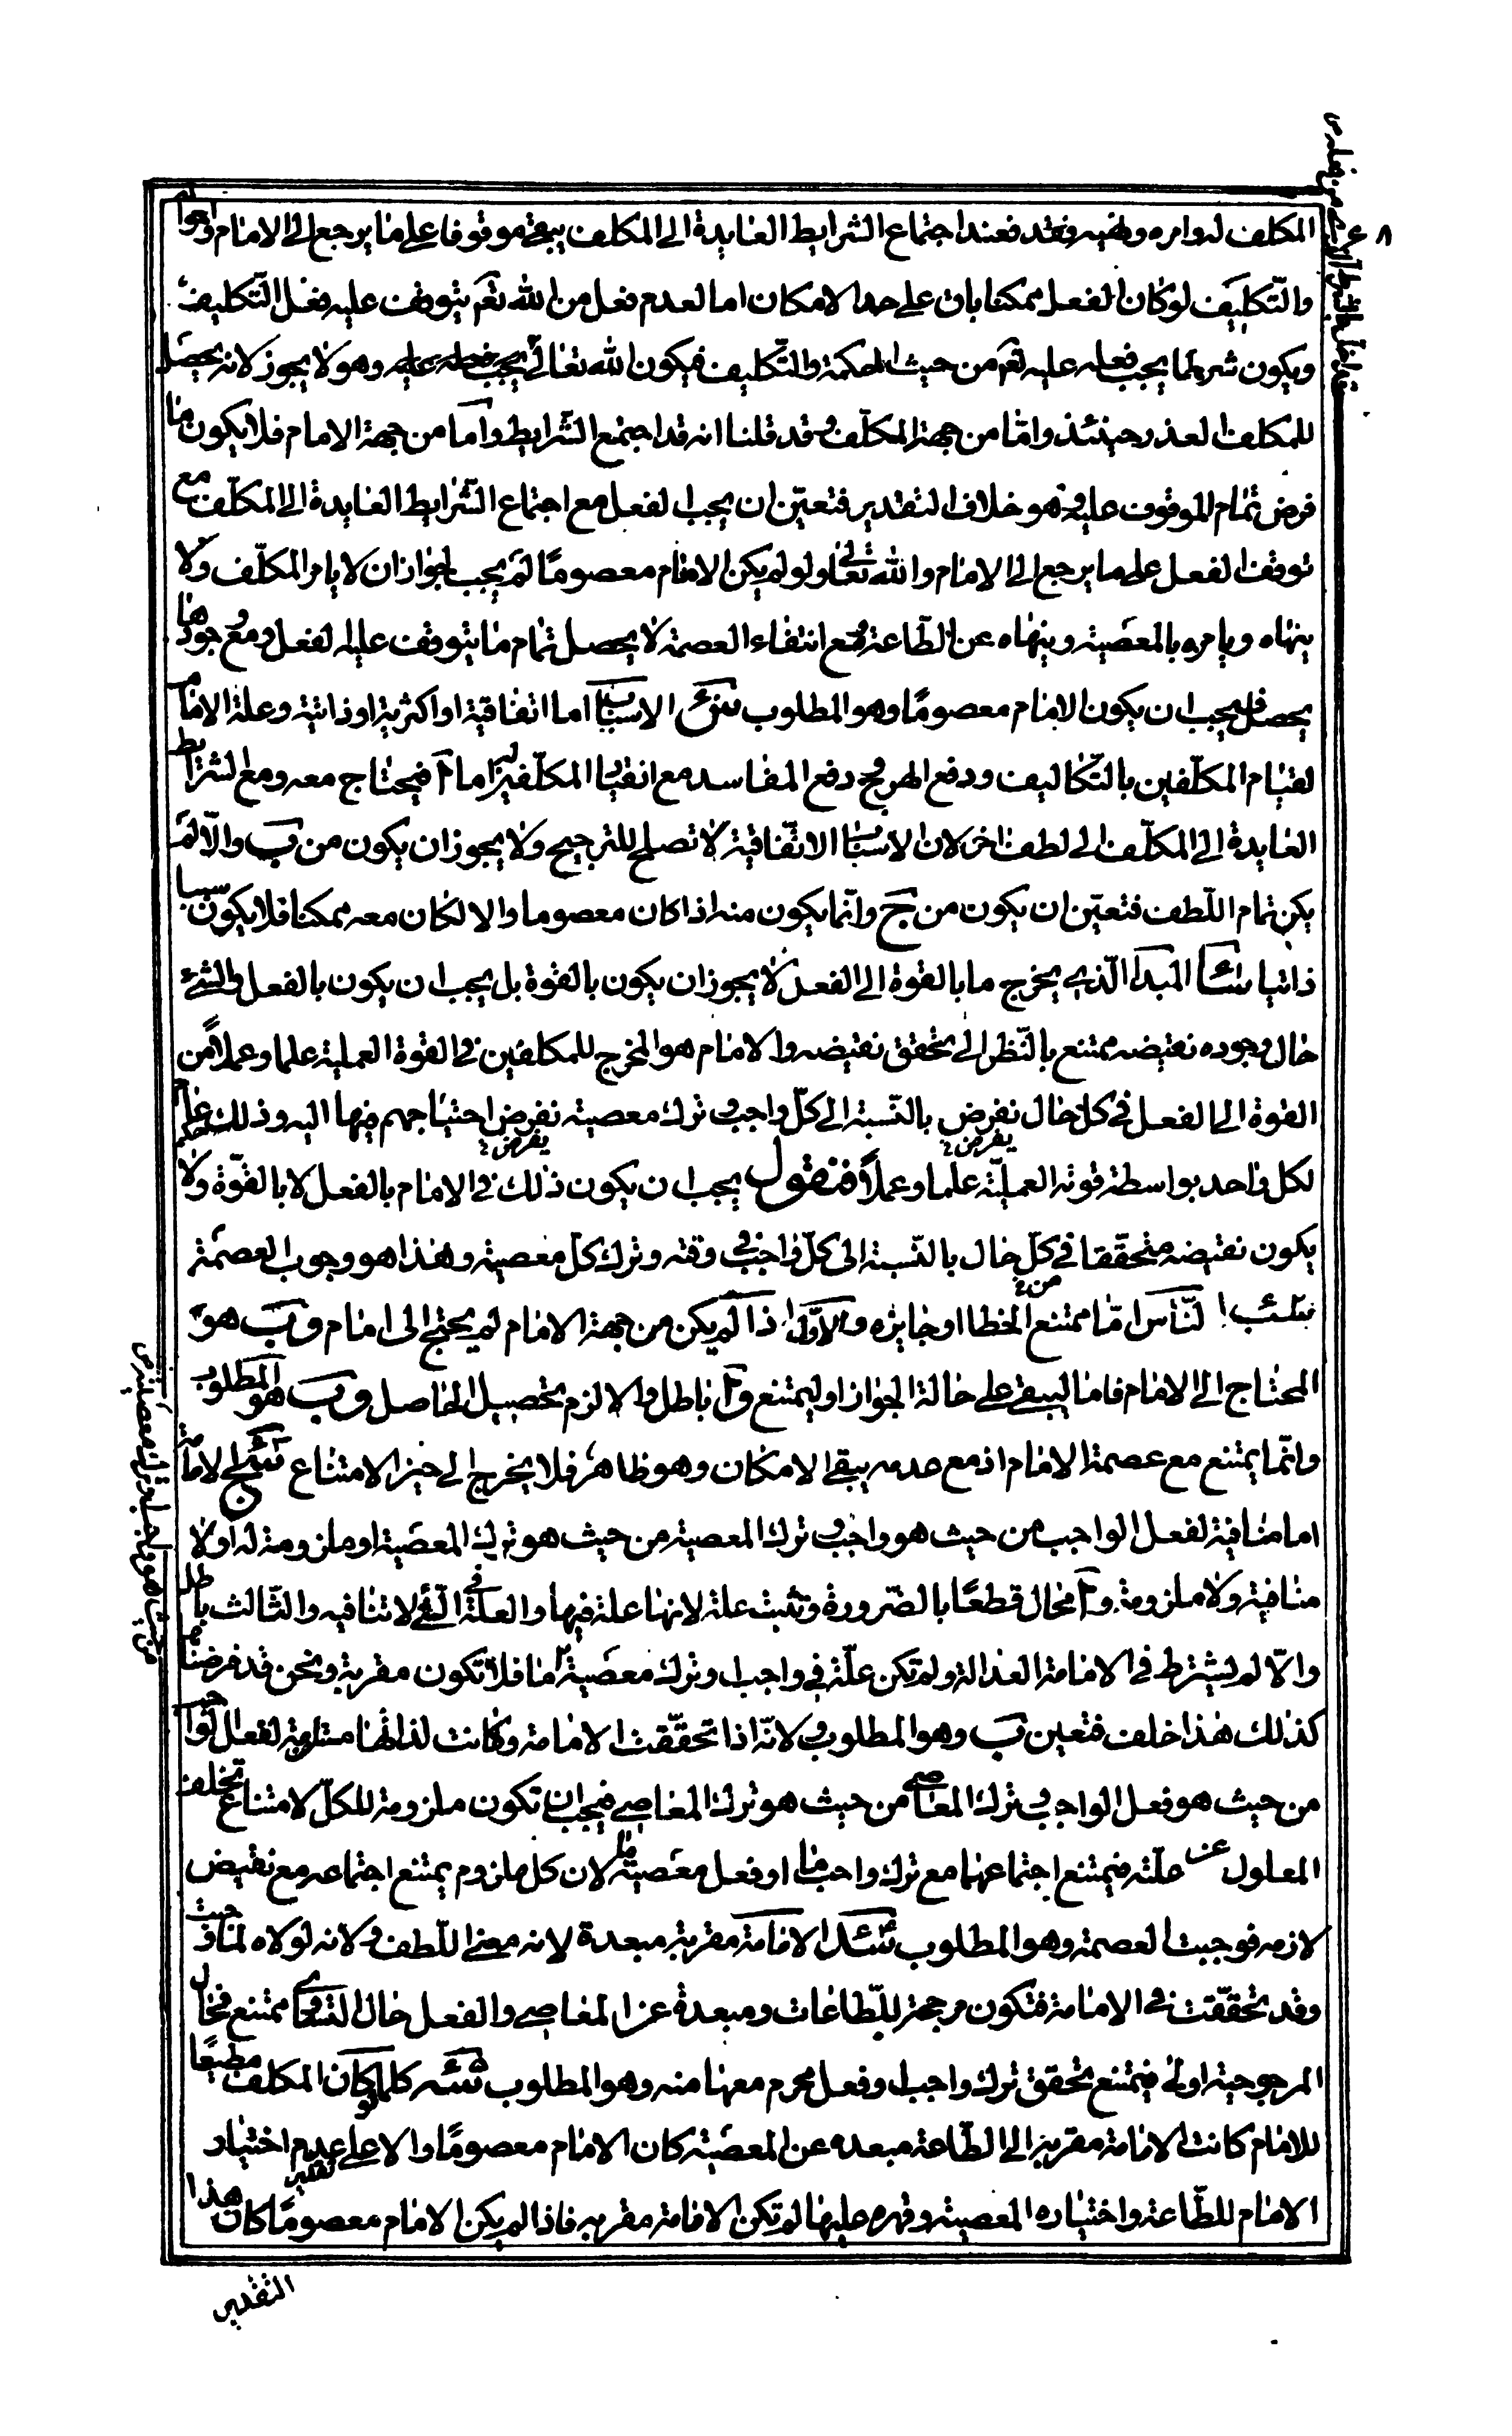 المكلف لاوامره ونهيه فقد فعند اجتماع الشرايط العايدة الى المكلف يبقى موقوفا على ما يرجع الى الامام
والتكليف لو كان الفعل ممكنا بان على حد الامكان اما لعدم فعل من الله تعم يتوقف عليه فعل التكليف
ويكون شرطا يجب فعله عليه تعم من حيث الحكمة والتكليف فيكون الله تعالى يجب فعله عليه وهو لا يجوز لانه يحصل
للمكلف العذر حينئذ واما من جهة المكلف وقد قلنا انه قد اجتمع الشرايط واما من جهة الامام فلا يكون ما
فرض تمام الموقوف عليه هو خلاف التقدير فتعين ان يجب الفعل مع اجتماع الشرايط العايدة الى المكلف مع
توقف الفعل على ما يرجع الى الامام والله تعالى ولو لم يكن الامام معصوما لم يجب لجواز ان لا يامر المكلف ولا
ينهاه ويامره بالمعصية وينهاه عن الطاعة فمع انتفاء العصمة لا يحصل تمام ما يتوقف عليه الفعل ومع وجودها
يحصل فيجب ان يكون الامام معصوما وهو المطلوب الاسباب اما اتفاقية او اكثرية او ذاتية وعلة الامام
لقيام المكلفين بالتكاليف ودفع الهرج ودفع المفاسد مع انقياد المكلفين اما فيحتاج معه ومع الشرايط
العايدة الى المكلف الى لطف اخر لان الاسباب الاتفاقية لا تصلح للترجيح ولا يجوز ان يكون من ب والا لم
يكن تمام اللطف فتعين ان يكون من ج وانما يكون منه اذا كان معصوما والا لكان معه ممكنا فلا يكون سببا
ذاتيا المبدأ الذي يخرج ما بالقوة الى الفعل لا يجوز ان يكون بالقوة بل يجب ان يكون بالفعل والشئ
حال وجوده نقيضه ممتنع بالنظر الى تحقق نقيضه والامام هو المخرج للمكلفين في القوة العملية علما وعملا من
القوة الى الفعل في كل حال نفرض بالنسبة الى كل واجب وترك معصية نفرض احتياجهم فيها اليه وذلك عام
يفرض يفرض
لكل واحد بواسطة قوته العملية علما وعملا فنقول يجب ان يكون ذلك في الامام بالفعل لا بالقوة ولا
يكون نقيضه متحققا في كل حال بالنسبة الى كل واجب في وقته وترك كل معصية وهذا هو وجوب العصمة
الناس اما ممتنع الخطا او جايزه والاول اذا لم يكن من جهة الامام لم يحتج الى امام و ب هو
المحتاج الى الامام فاما ليبقى على حالة الجواز او ليمتنع و آ باطل والا لزم تحصيل الحاصل و ب هو المطلوب
وانما يمتنع مع عصمة الامام اذ مع عدمه يبقى الامكان وهو ظاهر فلا يخرج الى حيز الامتناع الامامة
اما منافية لفعل الواجب من حيث هو واجب وترك المعصية من حيث هو ترك المعصية او ملزومة له او لا
منافية ولا ملزومة و آ محال قطعا بالضرورة وتثبت علة لانها علة فيها والعلة في الشئ لا تنافيه والثالث باطل
والا لم يشترط في الامامة العدالة ولم تكن علة في واجب وترك معصية ما فلا تكون مقربة ونحن قد فرضناها
كذلك هذا خلف فتعين ب وهو المطلوب ولانه اذا تحققت الامامة وكانت لذاتها مستلزمة لفعل الواجب
من حيث هو فعل الواجب وترك المعاصي من حيث هو ترك المعاصي فيجب ان تكون ملزومة للكل لامتناع تخلف
المعلول عن علته فيمتنع اجتماعها مع ترك واجب ما او فعل معصية ما لان كل ملزوم يمتنع اجتماعه مع نقيض
لازمه فوجبت العصمة وهو المطلوب الامامة مقربة مبعدة لانه معنى اللطف ولانه لولاه
وقد تحققت في الامامة فتكون مرجحة للطاعات ومبعدة عن المعاصي والفعل حال التساوي ممتنع فحال
المرجوحية اولى فيمتنع تحقق ترك واجب او فعل محرم معها منه وهو المطلوب كلما كان المكلف مطيعا
للامام كانت الامامة مقربة الى الطاعة مبعدة عن المعصية كان الامام معصوما والا على تقدير عدم اختيار
الامام للطاعة واختياره المعصية وقهره عليها لم تكن الامامة مقربة فاذا لم يكن الامام معصوما كان هذا
التقدير